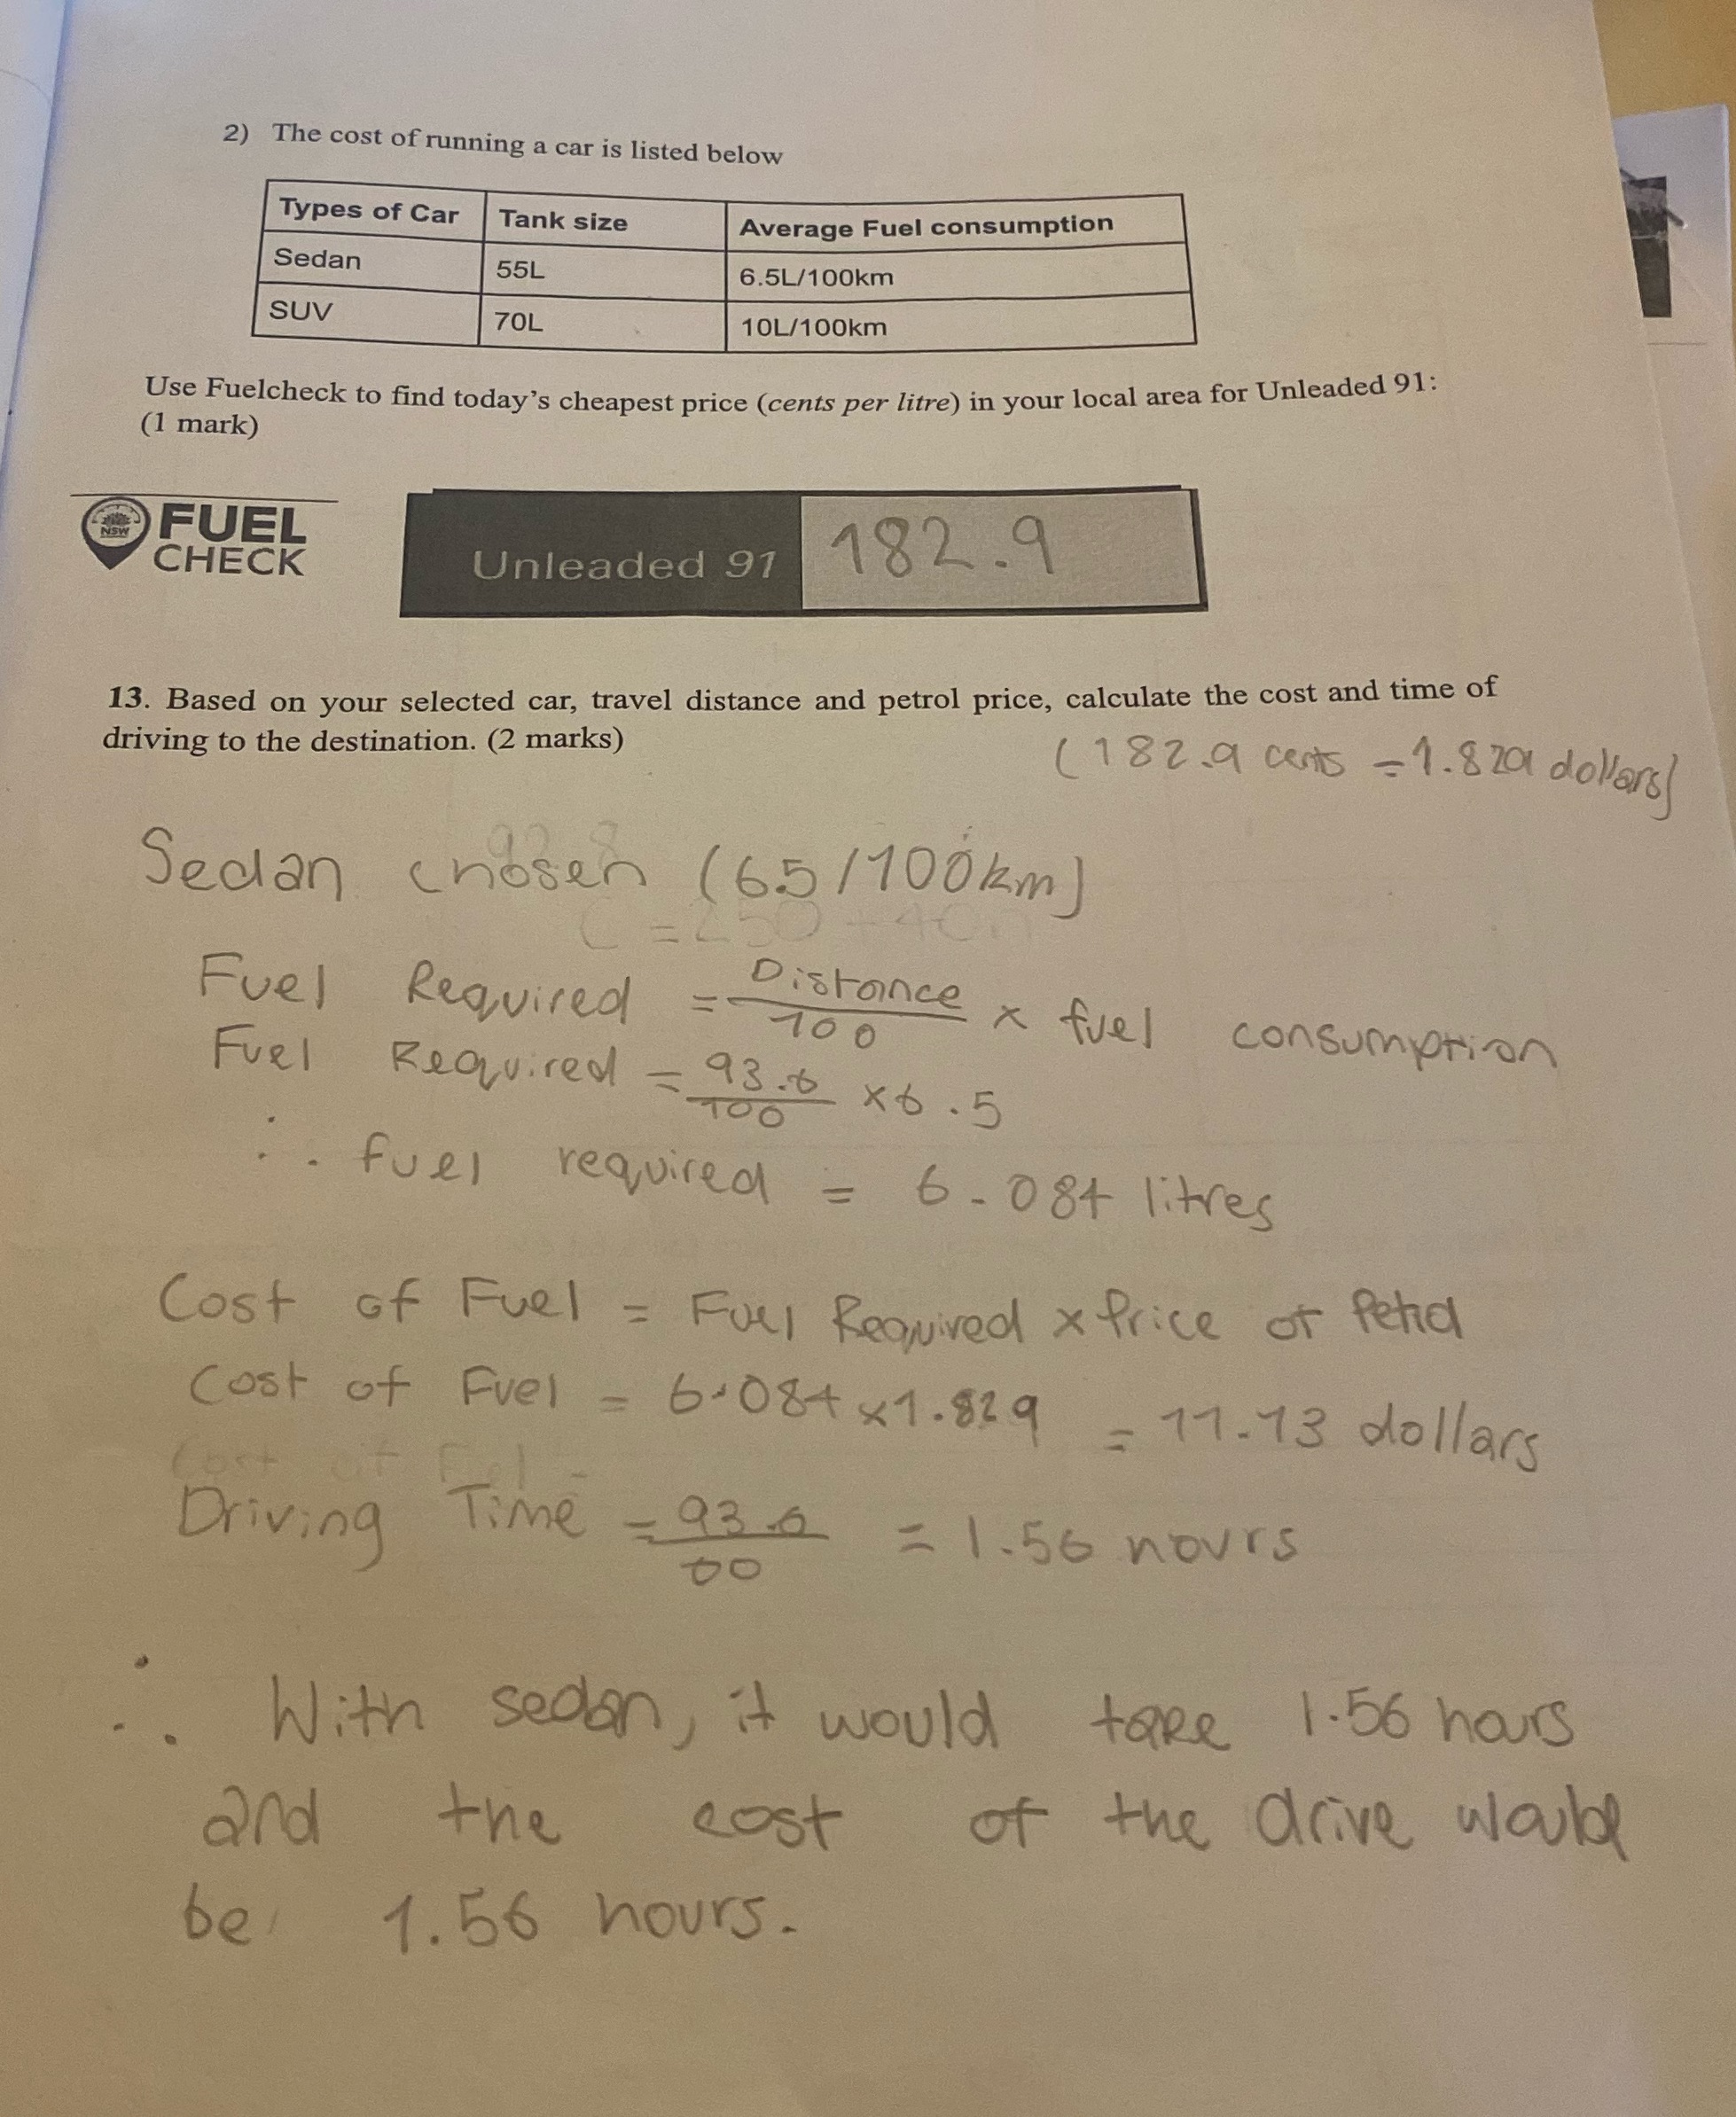 2) The cost of running a car is listed below
Types of Car Tank size Average Fuel consumption
Sedan 55L 6.5L/100km
SUV 70L 10L/100km
Use Fuelcheck to find today's cheapest price (cents per litre) in your local area for Unleaded 91:
(1 mark)
NSW FUEL
CHECK
Unleaded 91 182.9
13. Based on your selected car, travel distance and petrol price, calculate the cost and time of
driving to the destination. (2 marks)
(182.9 cents = 1.829 dollars)
Sedan chosen (6.5/100km)
Fuel Required = Distance/100 x fuel consumption
Fuel Required = 93.6/100 x 6.5
∴ fuel required = 6.084 litres
Cost of Fuel = Fuel Required x Price of Petrol
Cost of Fuel = 6.084 x 1.829 = 11.13 dollars
Driving Time = 93.6/60 = 1.56 hours
∴ With sedan, it would take 1.56 hours
and the cost of the drive would
be 1.56 hours.